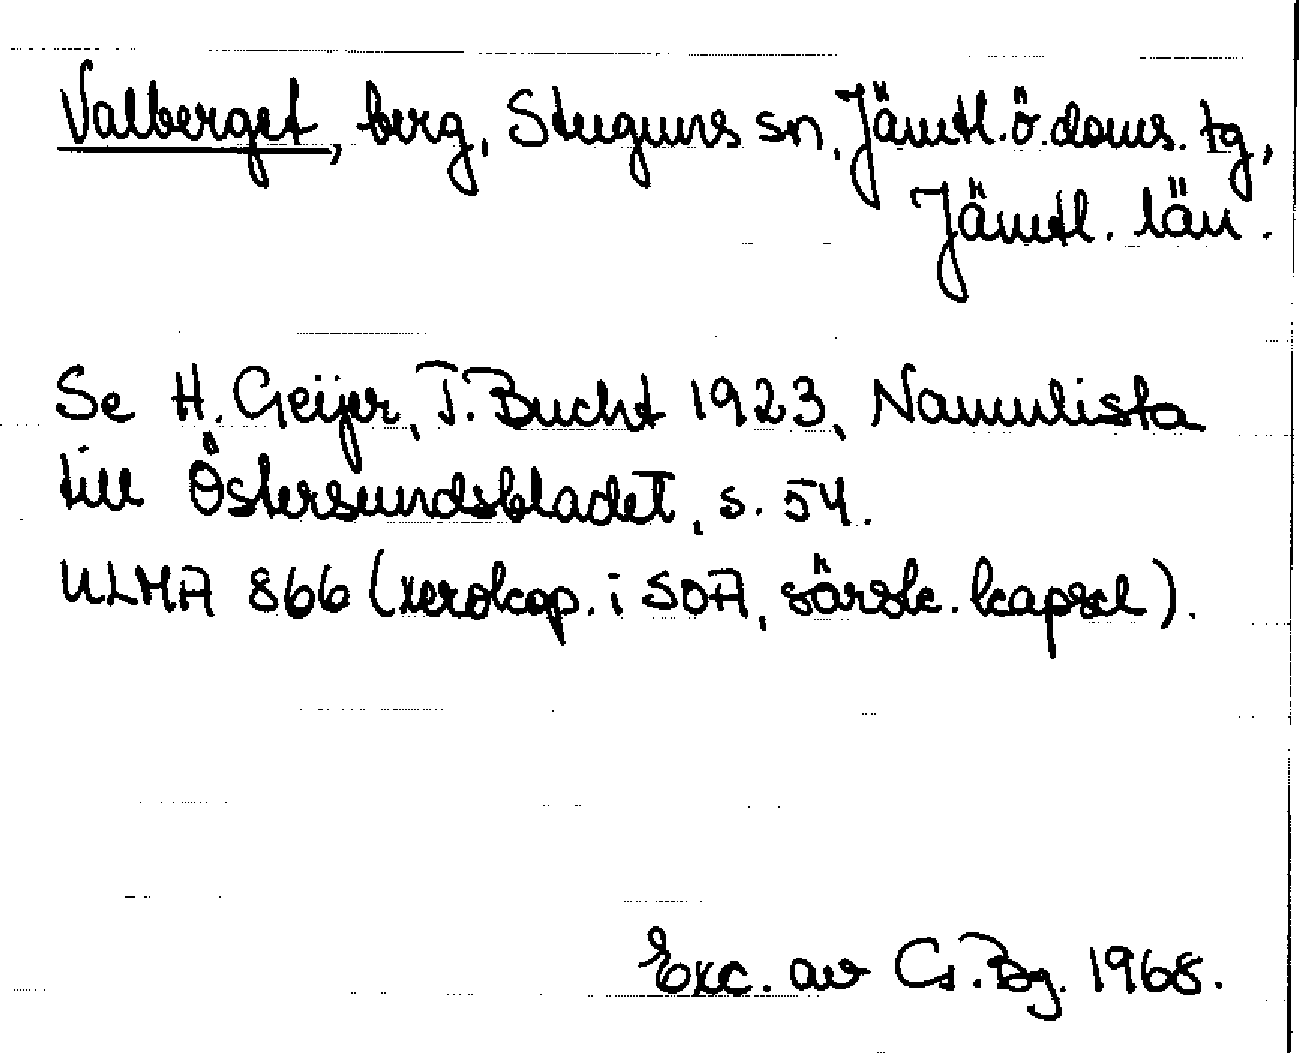 Valberget, berg, Stuguns sn, Jämtl. ö. doms. tg,
Jämtl. län.
Se H. Geijer, T. Bucht 1923, Namnlista
till Östersundsbladet, s. 54.
ULMA 866 (xerokop. i SOA, särsk. kapsel).
Exc. av G. Bg. 1968.